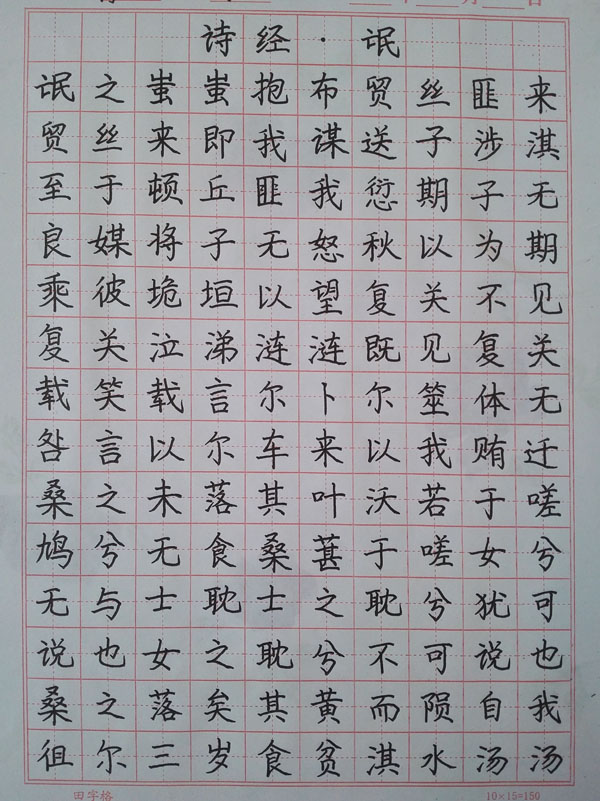 诗经·氓
氓之蚩蚩抱布贸丝匪来
贸丝来即我谋送子涉淇
至于顿丘匪我愆期子无
良媒将子无怒秋以为期
乘彼垝垣以望复关不见
复关泣涕涟涟既见复关
载笑载言尔卜尔筮体无
咎言以尔车来以我贿迁
桑之未落其叶沃若于嗟
鸠兮无食桑葚于嗟女兮
无与士耽士之耽兮犹可
说也女之耽兮不可说也
桑之落矣其黄而陨自我
徂尔三岁食贫淇水汤汤
田字格 10×15=150